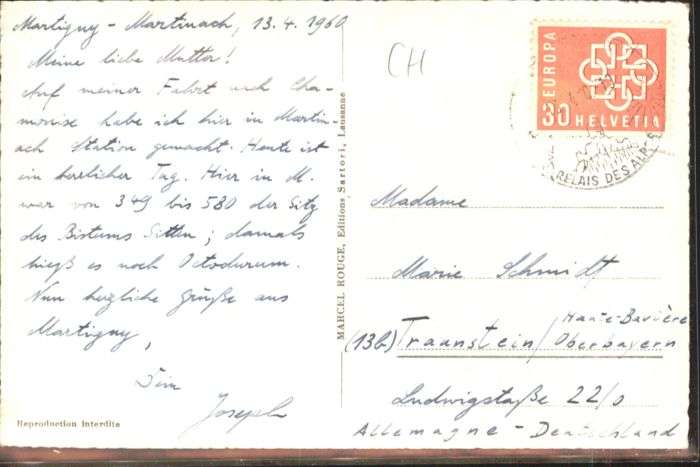 Martigny – Martinach, 13.4.1960
Meine liebe Mutter!
Auf meiner Fahrt nach Cha-
monise habe ich hier in Martin-
ach Station gemacht. Heute ist
ein herrlicher Tag. Hier in M.
war von 349 bis 580 der Sitz
des Bistums Sitten; damals
hieß es noch Octodurum.
Nun herzliche Grüße aus
Martigny,
Dein
Joseph
Reproduction interdite
MARCEL ROUGE, Editions Sartori, Lausanne
CH
EUROPA
30 HELVETIA
RELAIS DES ALPES
Madame
Marie Schmidt
Haute-Bavière
(13b) Traunstein/Oberbayern
Ludwigstraße 22/0
Allemagne – Deutschland